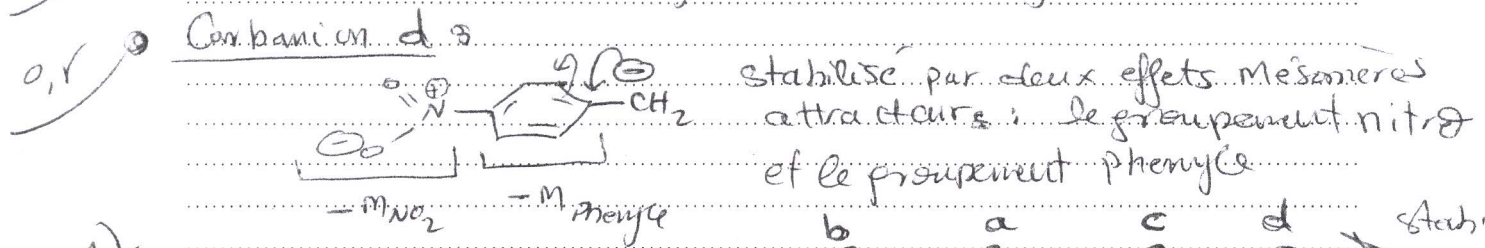 Carbanion d :
0,5
stabilisé par deux effets mésomères
attracteurs : le groupement nitro
et le groupement phenyle
O N ⊕ ⊖ CH2
⊖ O
-M NO2 -M Phenyle
b a c d